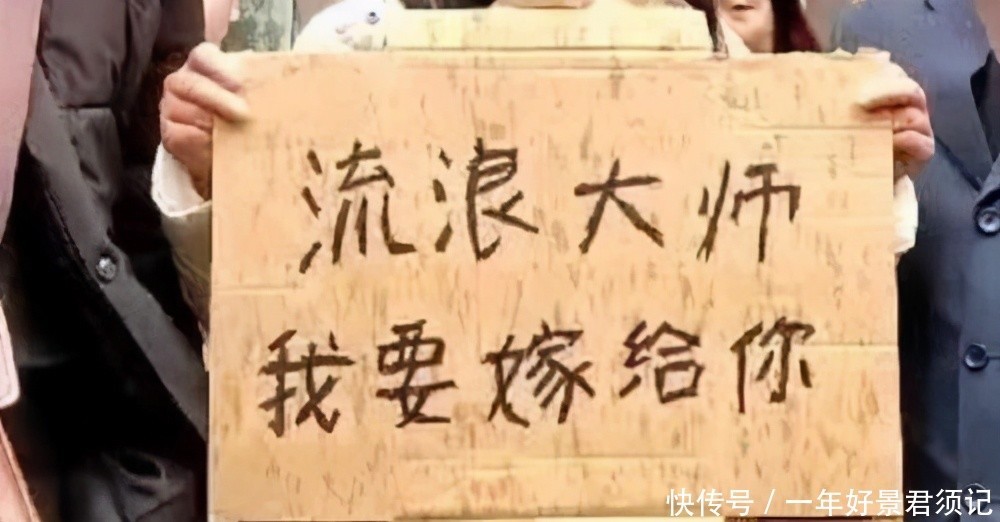 流浪大师
我要嫁给你
快传号 / 一年好景君须记